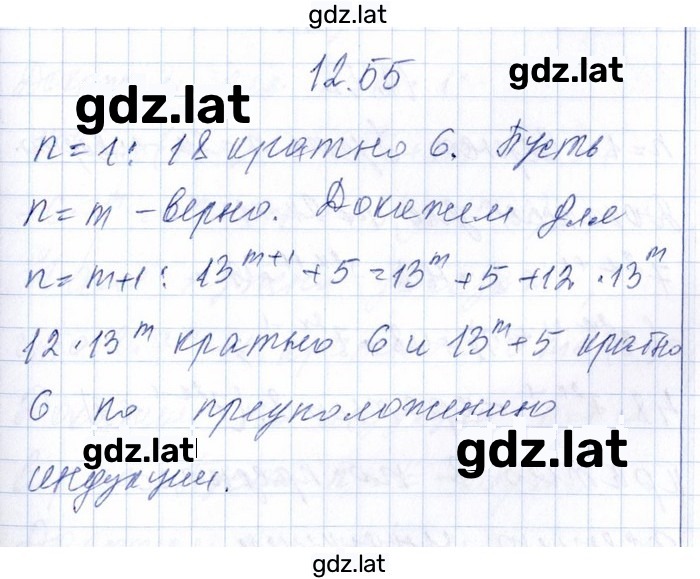 gdz.lat
12.55
gdz.lat
gdz.lat
n=1: 18 кратно 6. Пусть
n=m – верно. Докажем для
n=m+1: 13^{m+1}+5=13^m+5+12·13^m
12·13^m кратно 6 и 13^m+5 кратно
6 по предположению
gdz.lat
gdz.lat
индукции.
gdz.lat